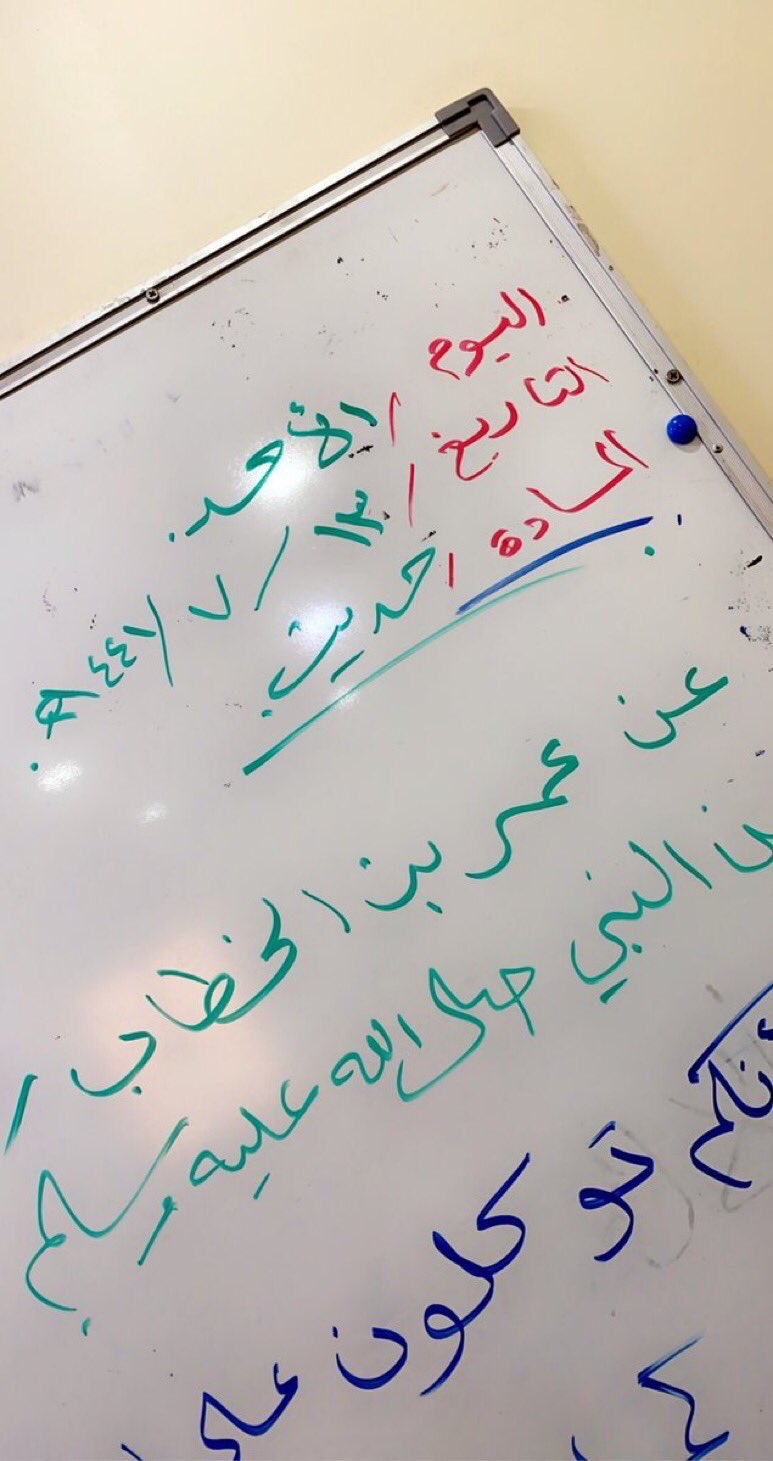 اليوم / الأحد.
التاريخ / ١٣ / ٧ / ١٤٤٦هـ.
المادة / حديث
عن عمر بن الخطاب ر
عن النبي صلى الله عليه وسلم.
أنكم توكلون على